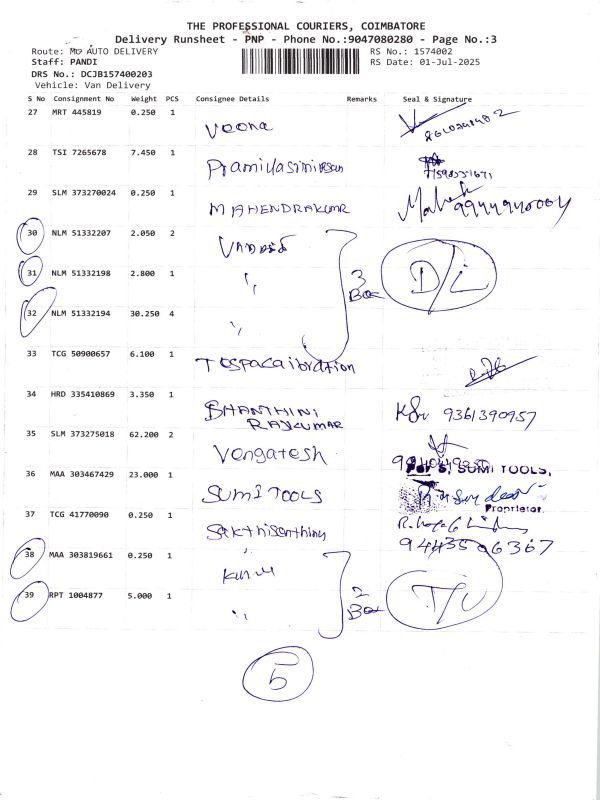 THE PROFESSIONAL COURIERS, COIMBATORE
Delivery Runsheet - PNP - Phone No.:9047080280 - Page No.:3
Route: AUTO DELIVERY
RS No.: 1574002
Staff: PANDI
RS Date: 01-Jul-2025
DRS No.: DCJB157400203
Vehicle: Van Delivery
S No Consignment No Weight PCS Consignee Details Remarks Seal & Signature
27 MRT 445819 0.250 1 Veena
28 TSI 7265678 7.450 1
29 SLM 373270024 0.250 1 MAHENDRAKUMAR Mahesh 9944940004
30 NLM 51332207 2.050 2
31 NLM 51332198 2.800 1 " 3 Box D/L
32 NLM 51332194 30.250 4 "
33 TCG 50900657 6.100 1
34 HRD 335410869 3.350 1 SHANTHINI RAJKUMAR 9361390957
35 SLM 373275018 62.200 2 Vengatesh
36 MAA 303467429 23.000 1 SUMI TOOLS For S, SUMI TOOLS,
Proprietor.
37 TCG 41770090 0.250 1 Sakthisenthing
9443506367
38 MAA 303819661 0.250 1
39 RPT 1004877 5.000 1 " 2 Box
5